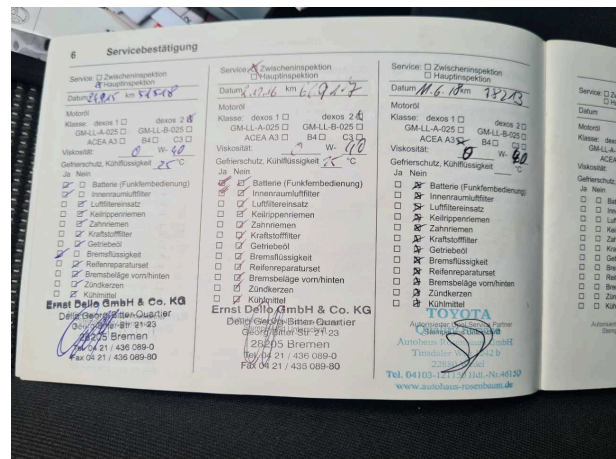 6 Servicebestätigung
Service: Zwischeninspektion
Hauptinspektion
Datum km
Motoröl
Klasse: dexos 1 dexos 2
GM-LL-A-025 GM-LL-B-025
ACEA A3 B4 C3
Viskosität: 0 W- 40
Gefrierschutz, Kühlflüssigkeit 25 °C
Ja Nein
Batterie (Funkfernbedienung)
Innenraumluftfilter
Luftfiltereinsatz
Keilrippenriemen
Zahnriemen
Kraftstofffilter
Getriebeöl
Bremsflüssigkeit
Reifenreparaturset
Bremsbeläge vorn/hinten
Zündkerzen
Kühlmittel
Ernst Dello GmbH & Co. KG
Dello Georg-Bitter-Quartier
Georg-Bitter-Str. 21-23
28205 Bremen
Tel. 04 21 / 436 089-0
Fax 04 21 / 436 089-80
Service: Zwischeninspektion
Hauptinspektion
Datum km
Motoröl
Klasse: dexos 1 dexos 2
GM-LL-A-025 GM-LL-B-025
ACEA A3 B4 C3
Viskosität: 0 W- 40
Gefrierschutz, Kühlflüssigkeit °C
Ja Nein
Batterie (Funkfernbedienung)
Innenraumluftfilter
Luftfiltereinsatz
Keilrippenriemen
Zahnriemen
Kraftstofffilter
Getriebeöl
Bremsflüssigkeit
Reifenreparaturset
Bremsbeläge vorn/hinten
Zündkerzen
Kühlmittel
Ernst Dello GmbH & Co. KG
Dello Georg-Bitter-Quartier
Georg-Bitter-Str. 21-23
28205 Bremen
Tel. 04 21 / 436 089-0
Fax 04 21 / 436 089-80
Service: Zwischeninspektion
Hauptinspektion
Datum 11.6.18 km 78213
Motoröl
Klasse: dexos 1 dexos 2
GM-LL-A-025 GM-LL-B-025
ACEA A3 B4 C3
Viskosität: 0 W- 40
Gefrierschutz, Kühlflüssigkeit °C
Ja Nein
Batterie (Funkfernbedienung)
Innenraumluftfilter
Luftfiltereinsatz
Keilrippenriemen
Zahnriemen
Kraftstofffilter
Getriebeöl
Bremsflüssigkeit
Reifenreparaturset
Bremsbeläge vorn/hinten
Zündkerzen
Kühlmittel
TOYOTA
Autorisierter Opel Service Partner
Autohaus GmbH
www.autohaus-rosenbaum.de
Datum
Motoröl
Viskosität:
Ja Nein